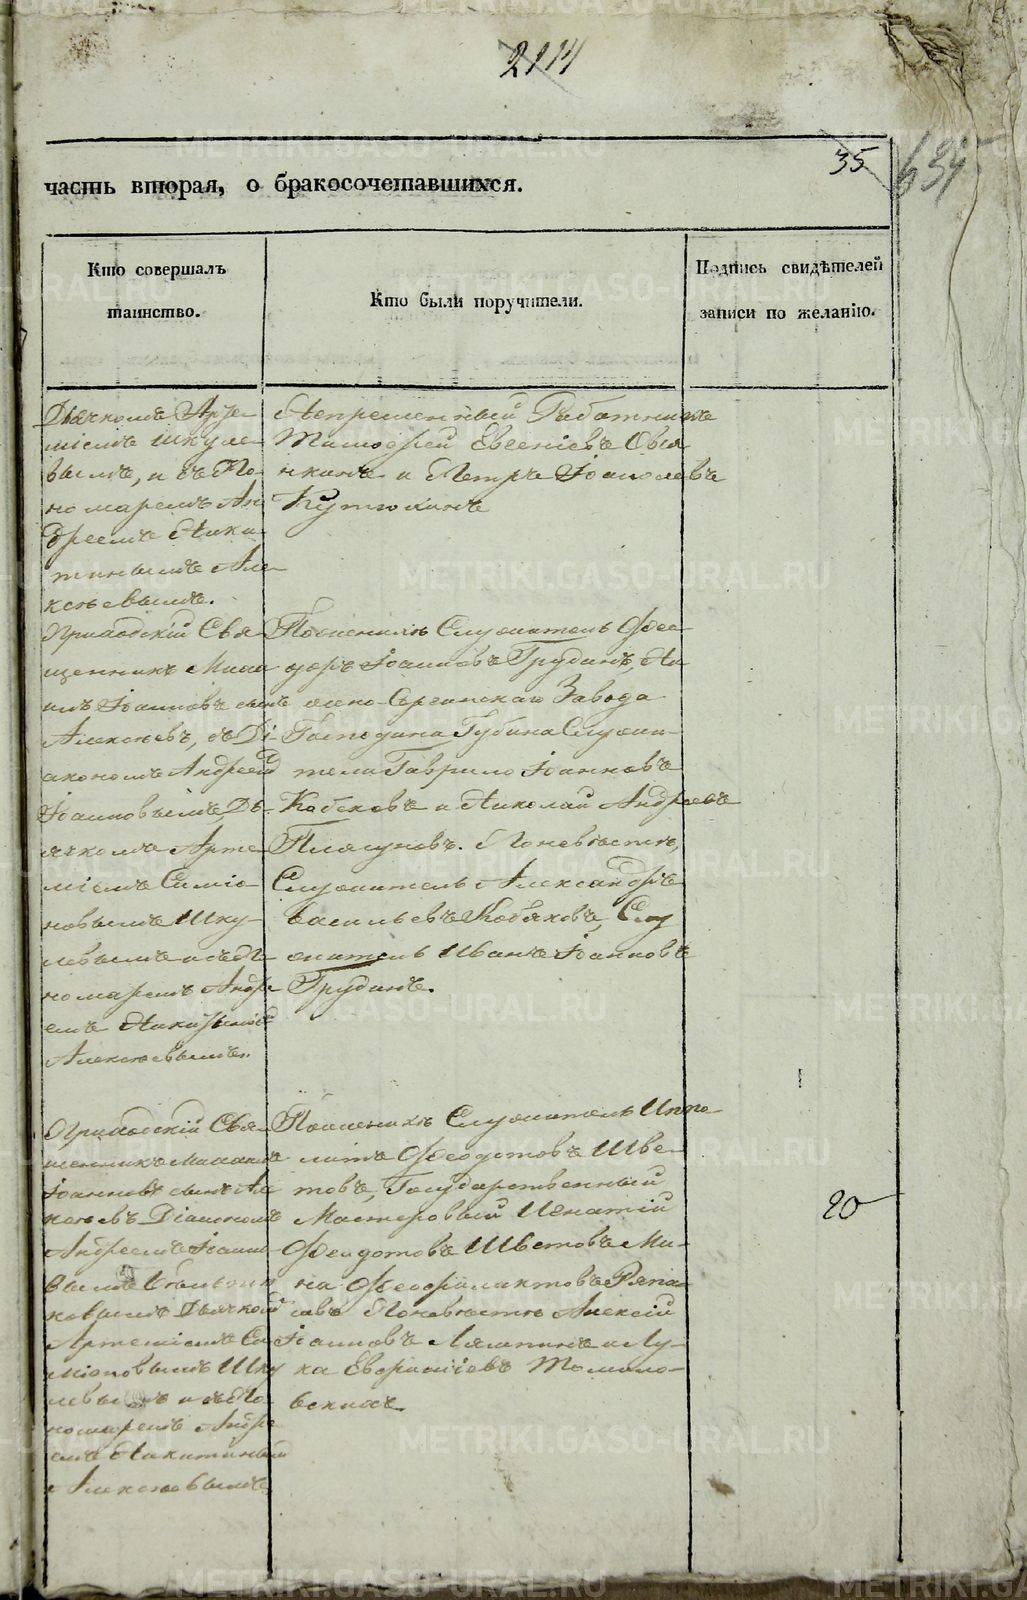 2114
35
637
часть вторая, о бракосочетавшихся.
Кто совершалъ
таинство.
Кто были поручители.
Подпись свидѣтелей
записи по желанію.
Дьячкомъ Арте-
міемъ Шкуле-
вымъ, и съ По-
номаремъ Ан-
дреемъ Ники-
тинымъ Але-
ксѣевымъ.
Непременный Работникъ
Тимофей Евсеніевъ Овся-
нкинъ и Петръ Іаковлевъ
Кутюхинъ
Приходскій Свя-
щенникъ Миха-
илъ Іоанновъ сынъ
Алексѣевъ, съ Ді-
акономъ Андреемъ
Іоанновымъ, Дь-
ячкомъ Арте-
міемъ Симіо-
новымъ Шку-
левымъ и съ По-
номаремъ Андре-
емъ Никитинымъ
Алексѣевымъ.
По женихѣ Служитель Ѳео-
доръ Іоанновъ Трубинъ, Ни-
жно-Сергинскаго Завода
Господина Губина Служи-
тели Гаврило Іоанновъ
Кобяковъ и Николай Андреевъ
Плясуновъ. По невѣстѣ,
Служитель Александръ
Васильевъ Кобяковъ, Слу-
житель Иванъ Іоанновъ
Трубинъ.
Приходскій Свя-
щенникъ Михаилъ
Іоанновъ сынъ Але-
ксѣевъ Діакономъ
Андреемъ Іоанно-
вымъ
Дьячкомъ
Артеміемъ Си-
міоновымъ Шку-
левымъ и съ По-
номаремъ Андре-
емъ Никитинымъ
Алексѣевымъ
По женихѣ Служитель Иппо-
литъ Ѳеодотовъ Шве-
товъ, Государственный
Мастеровый Игнатій
Ѳеодотовъ Шветовъ Ми-
на Ѳеофилактовъ
По невѣстѣ Алексій
Іоанновъ Ляпинъ и Лу-
ка Евфиміевъ Томило-
вскихъ
20
METRIKI.GASO-URAL.RU